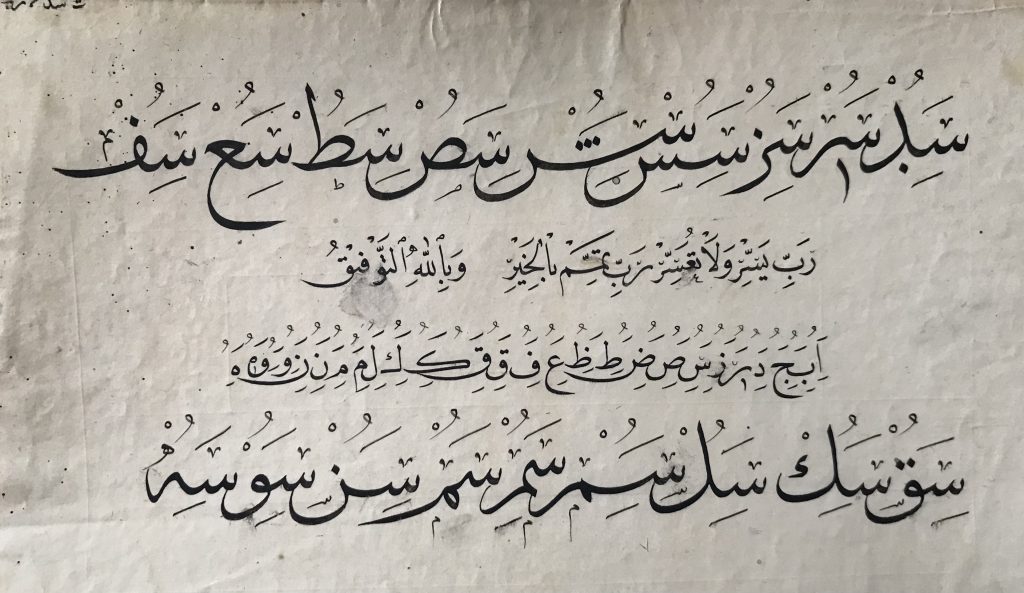 سد سر سز سس سص سط سع سف
رَبِّ يَسِّرْ وَلَا تُعَسِّرْ رَبِّ تَمِّمْ بِالْخَيْرِ وَبِاللّٰهِ التَّوْفِيْقُ
ا ب ج د ر ز س ص ض ط ظ ع ف ق ق ك ك ل م م ن ن و و ه ه
سق سك سل سم سم سم سن سو سه